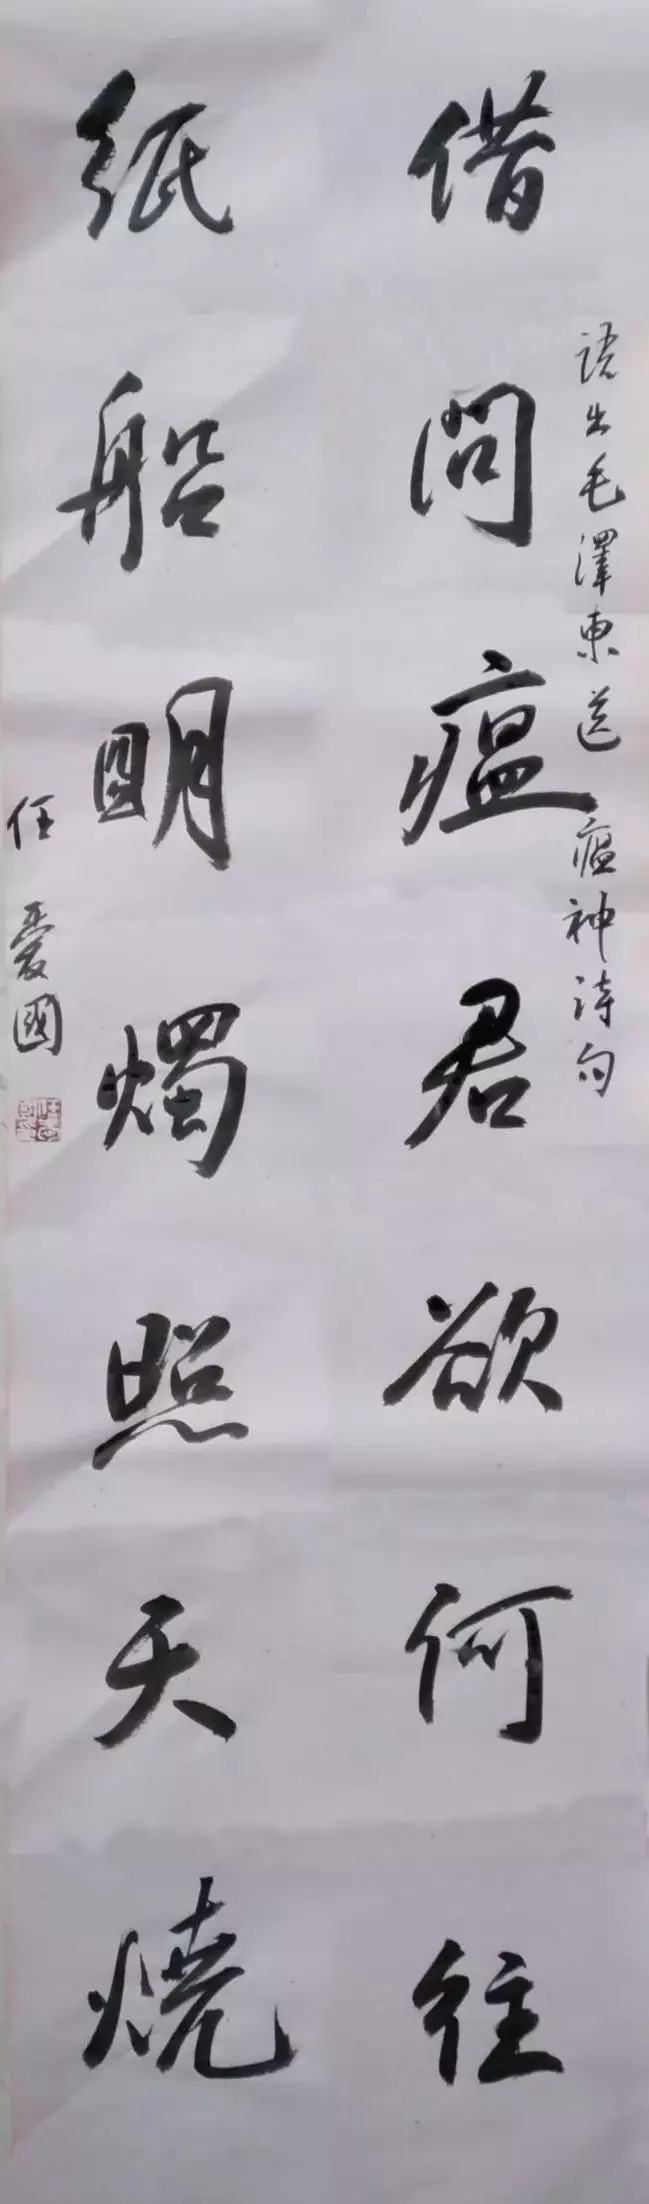 借問瘟君欲何往
語出毛澤東送瘟神詩句
紙船明燭照天燒
任愛國